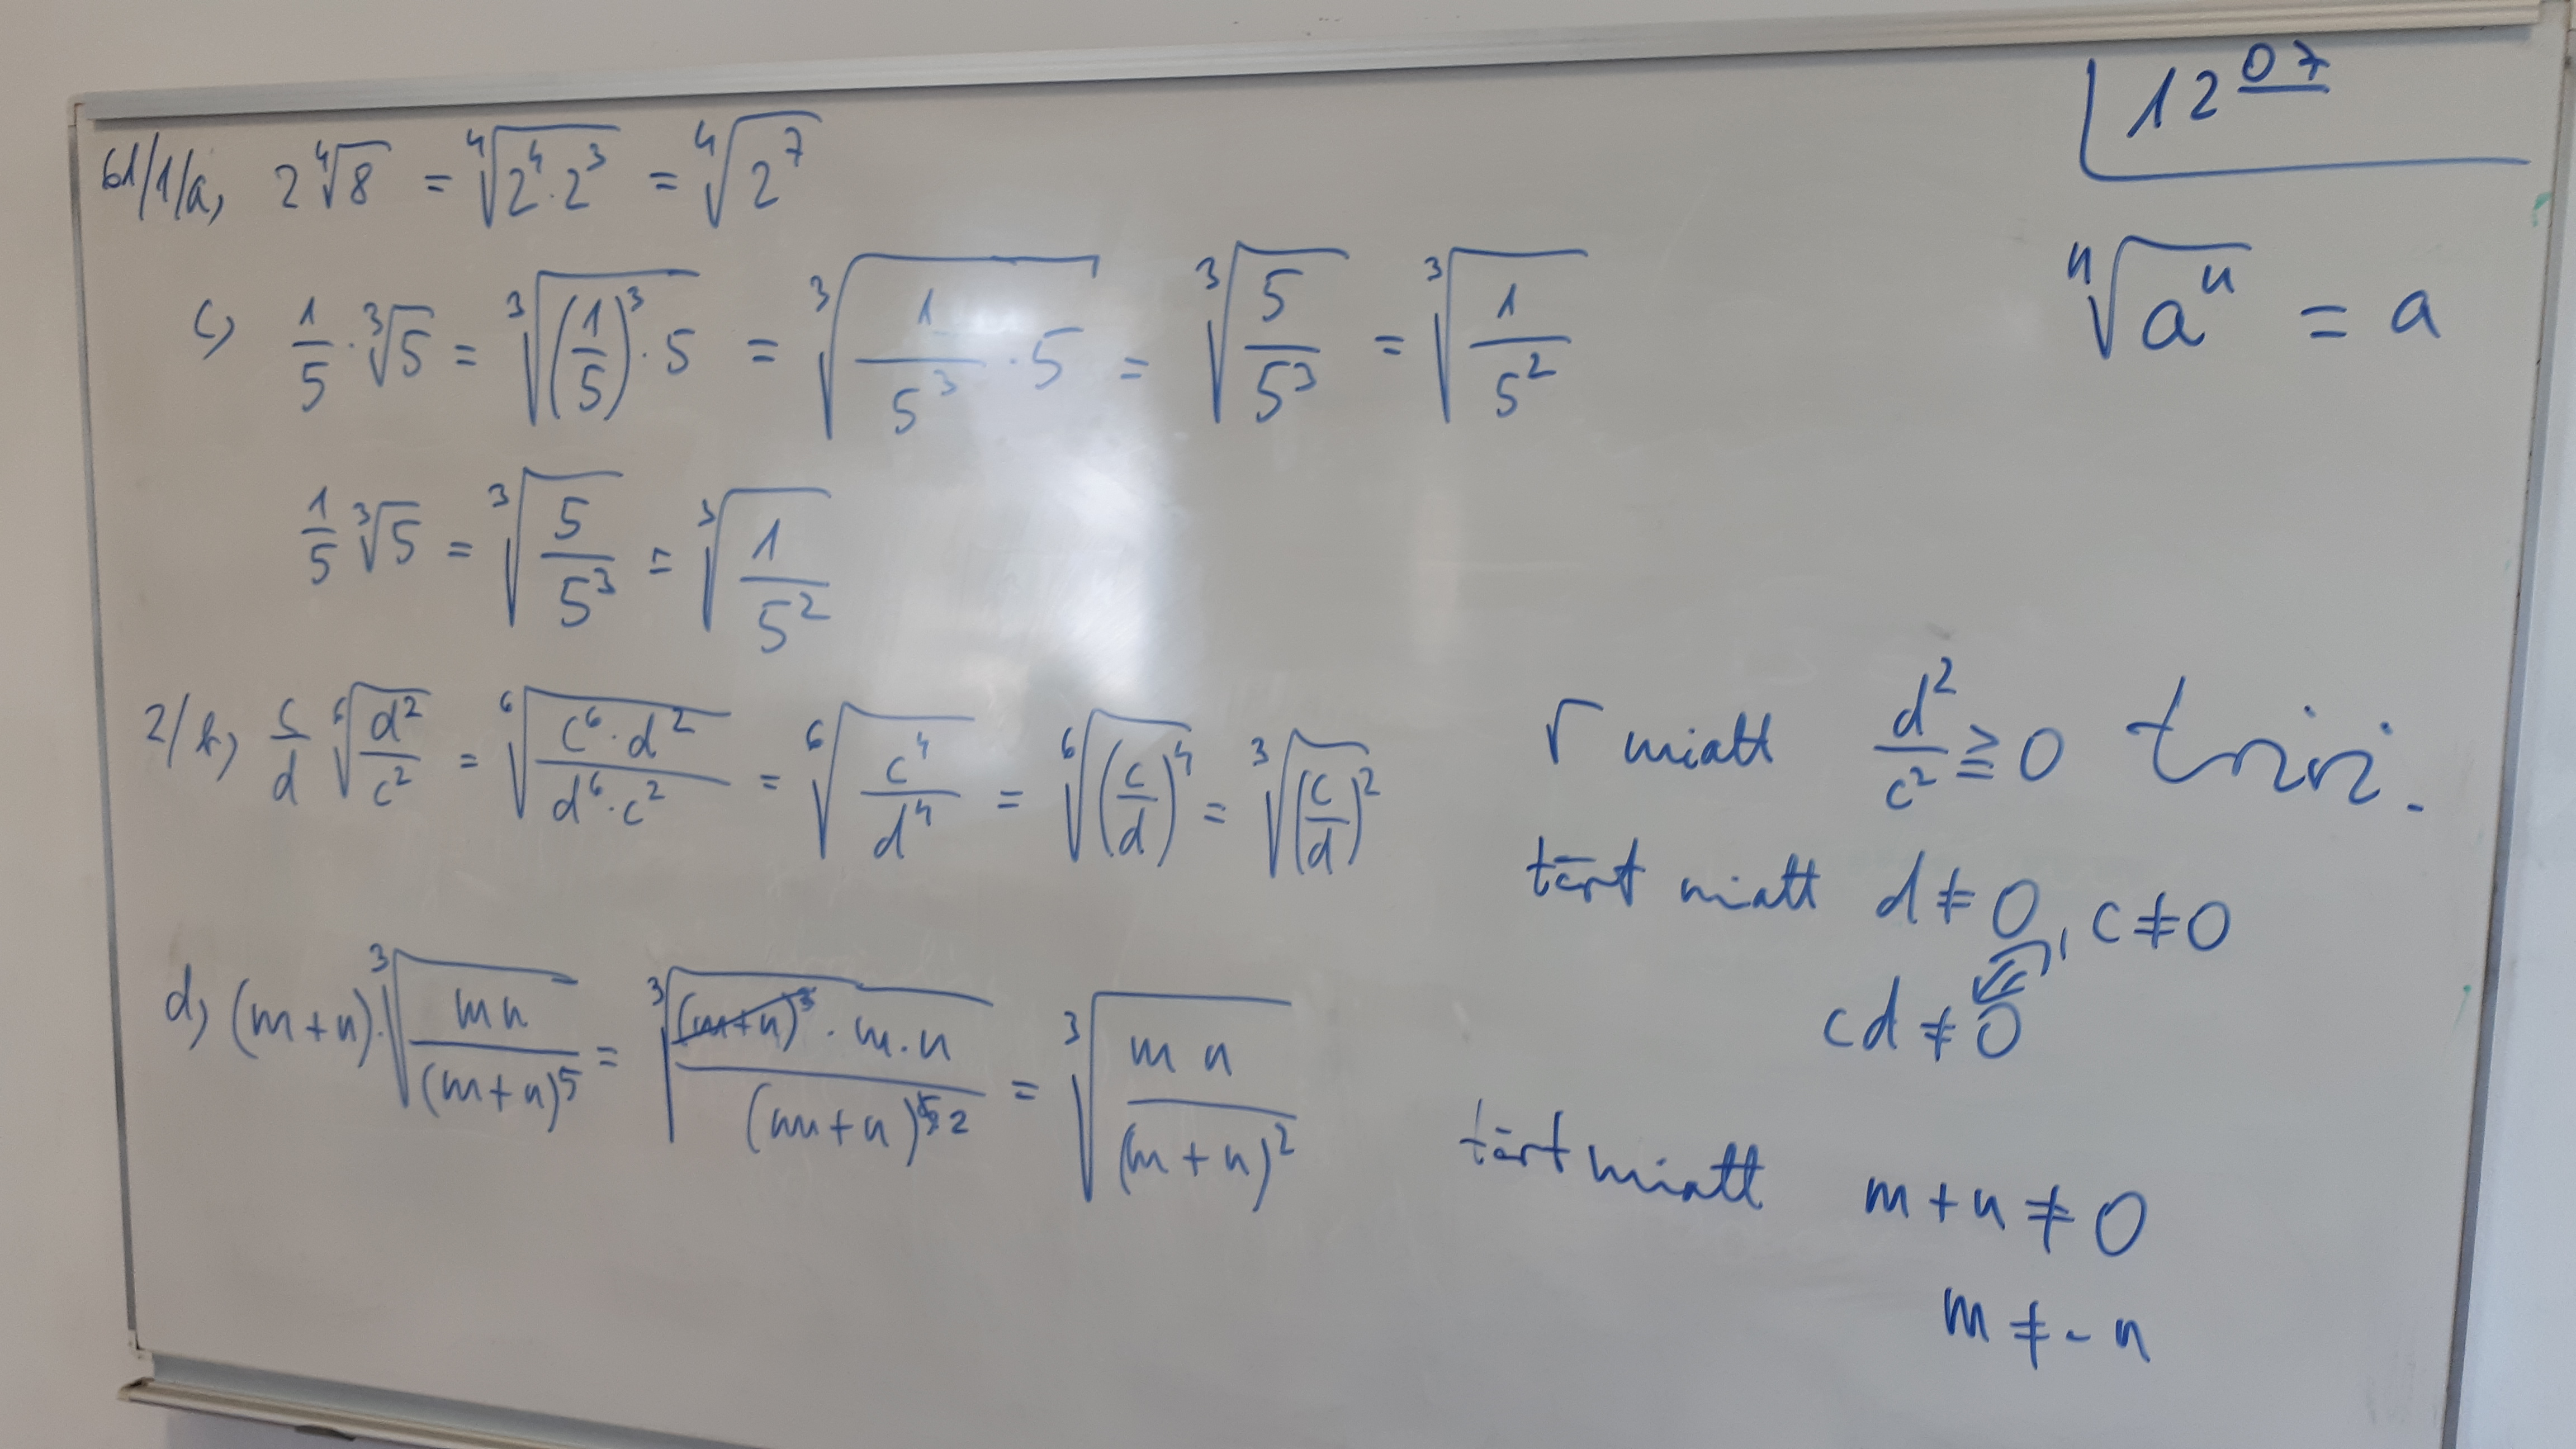 12 07
61/1/a, 2∜8 = ∜(2⁴·2³) = ∜(2⁷)
ⁿ√(aⁿ) = a
c, 1/5 · ∛5 = ∛((1/5)³ · 5) = ∛(1/5³ · 5) = ∛(5/5³) = ∛(1/5²)
1/5 ∛5 = ∛(5/5³) = ∛(1/5²)
2/b, c/d ⁶√(d²/c²) = ⁶√((c⁶·d²)/(d⁶·c²)) = ⁶√(c⁴/d⁴) = ⁶√((c/d)⁴) = ∛((c/d)²)
√ miatt d²/c² ≧ 0 trivi.
tört miatt d ≠ 0, c ≠ 0
cd ≠ 0
d, (m+n)·∛(mn/(m+n)⁵) = ∛(((m+n)³ · m·n)/(m+n)⁵ ²) = ∛(mn/(m+n)²)
tört miatt m+n ≠ 0
m ≠ -n